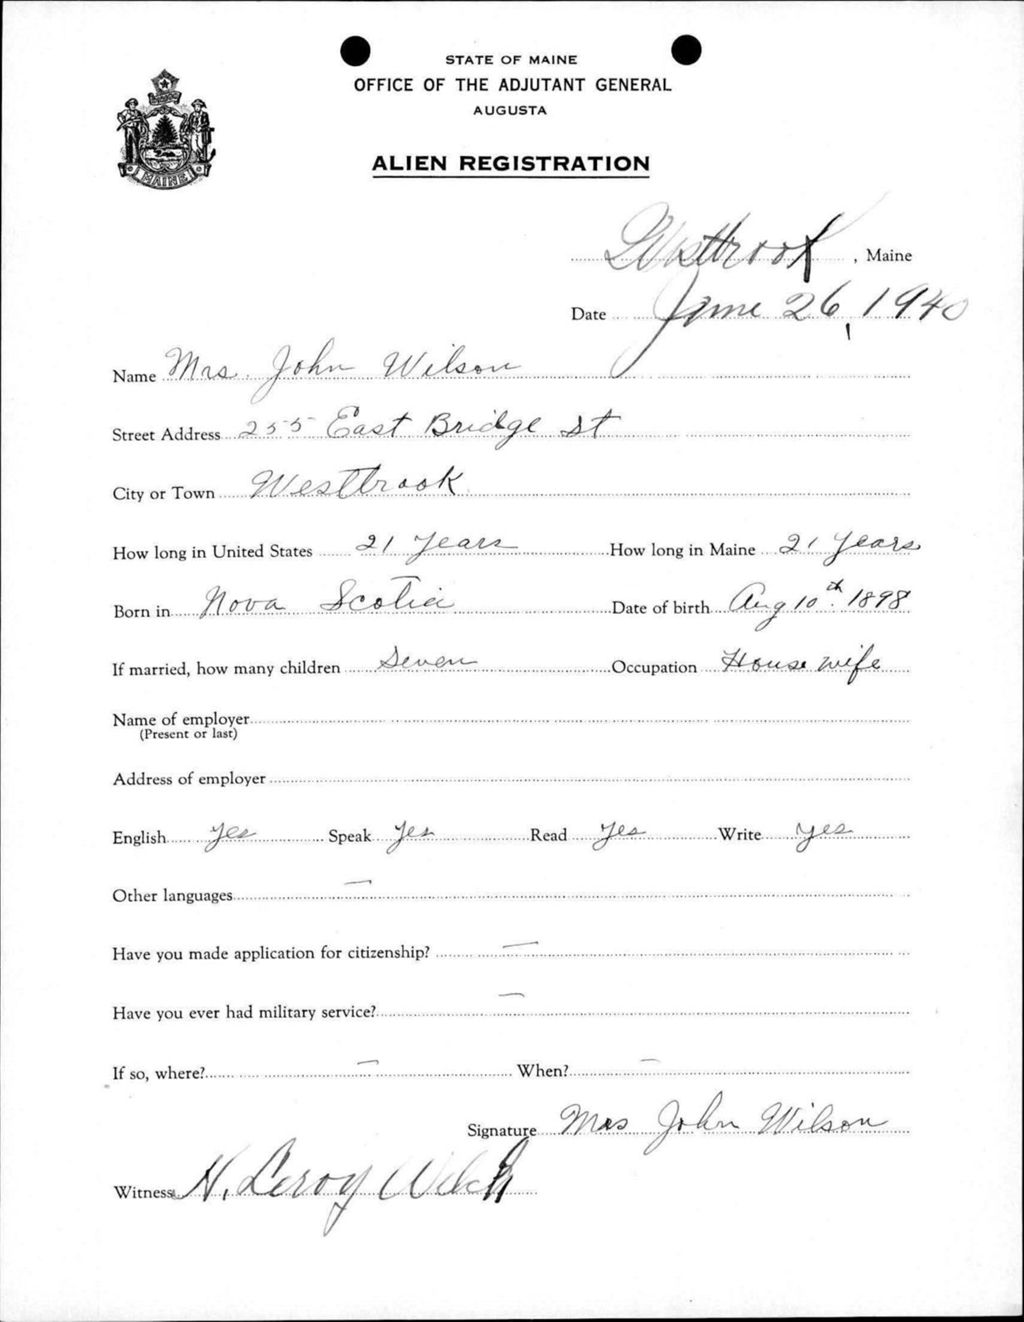 STATE OF MAINE
OFFICE OF THE ADJUTANT GENERAL
AUGUSTA
MAINE
ALIEN REGISTRATION
Westbrook, Maine
Date June 26, 1940
Name Mrs. John Wilson
Street Address 255 East Bridge St
City or Town Westbrook
How long in United States 21 Years How long in Maine 21 Years
Born in Nova Scotia Date of birth Aug 10th. 1898
If married, how many children Seven Occupation House wife
Name of employer
(Present or last)
Address of employer
English Yes Speak Yes Read Yes Write Yes
Other languages —
Have you made application for citizenship? —
Have you ever had military service? —
If so, where? — When? —
Signature Mrs John Wilson
Witness H. Leroy Welch